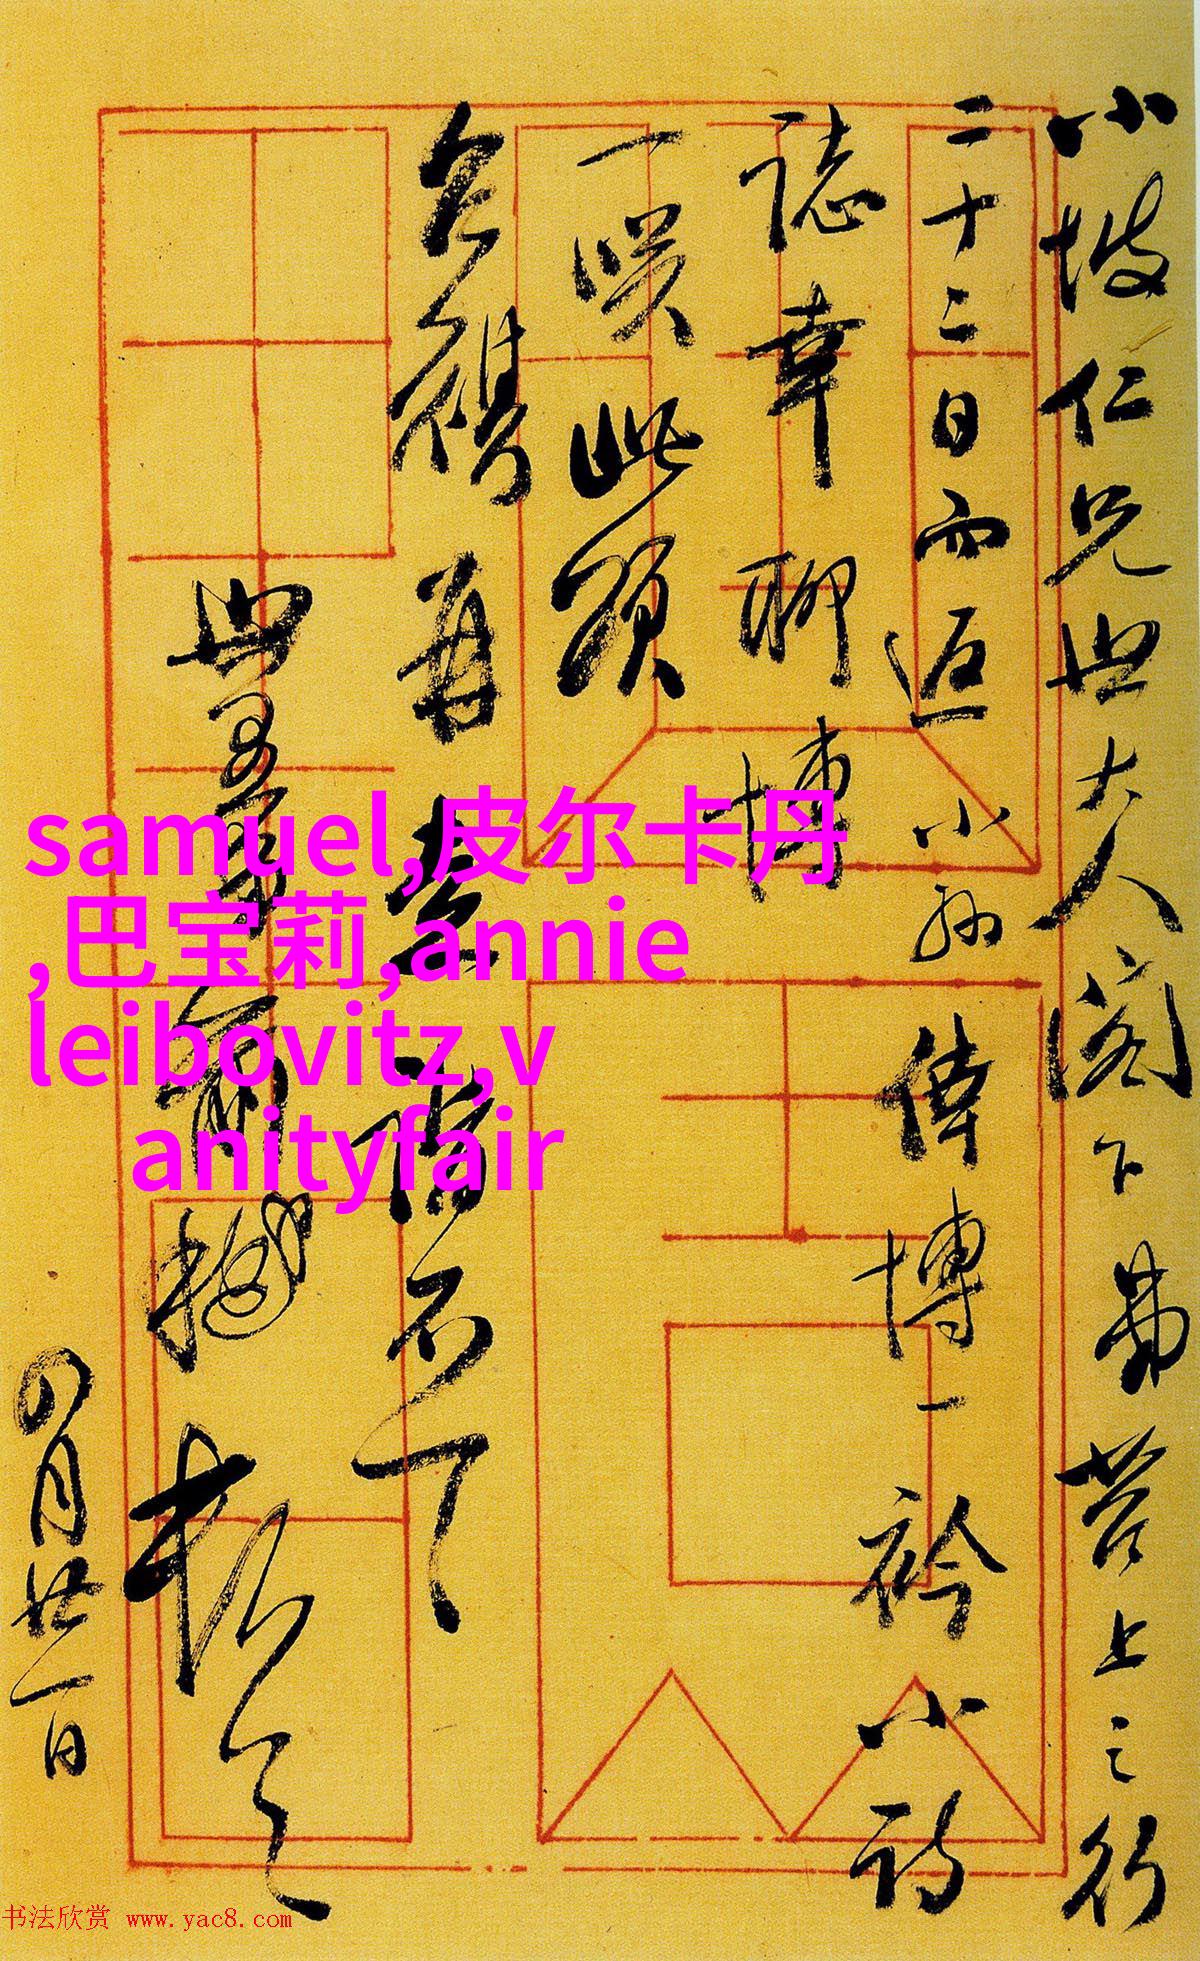 小坡仁兄世大人阁下 苕上之行
二十二日而返小孙倖博一衿小诗
誌幸聊博
一咲此颂
台禩 再 不了
世 前
四月廿一日
samuel,皮尔卡丹
,巴宝莉,annie
leibovitz,v
anityfair
书法欣赏 www.yac8.com